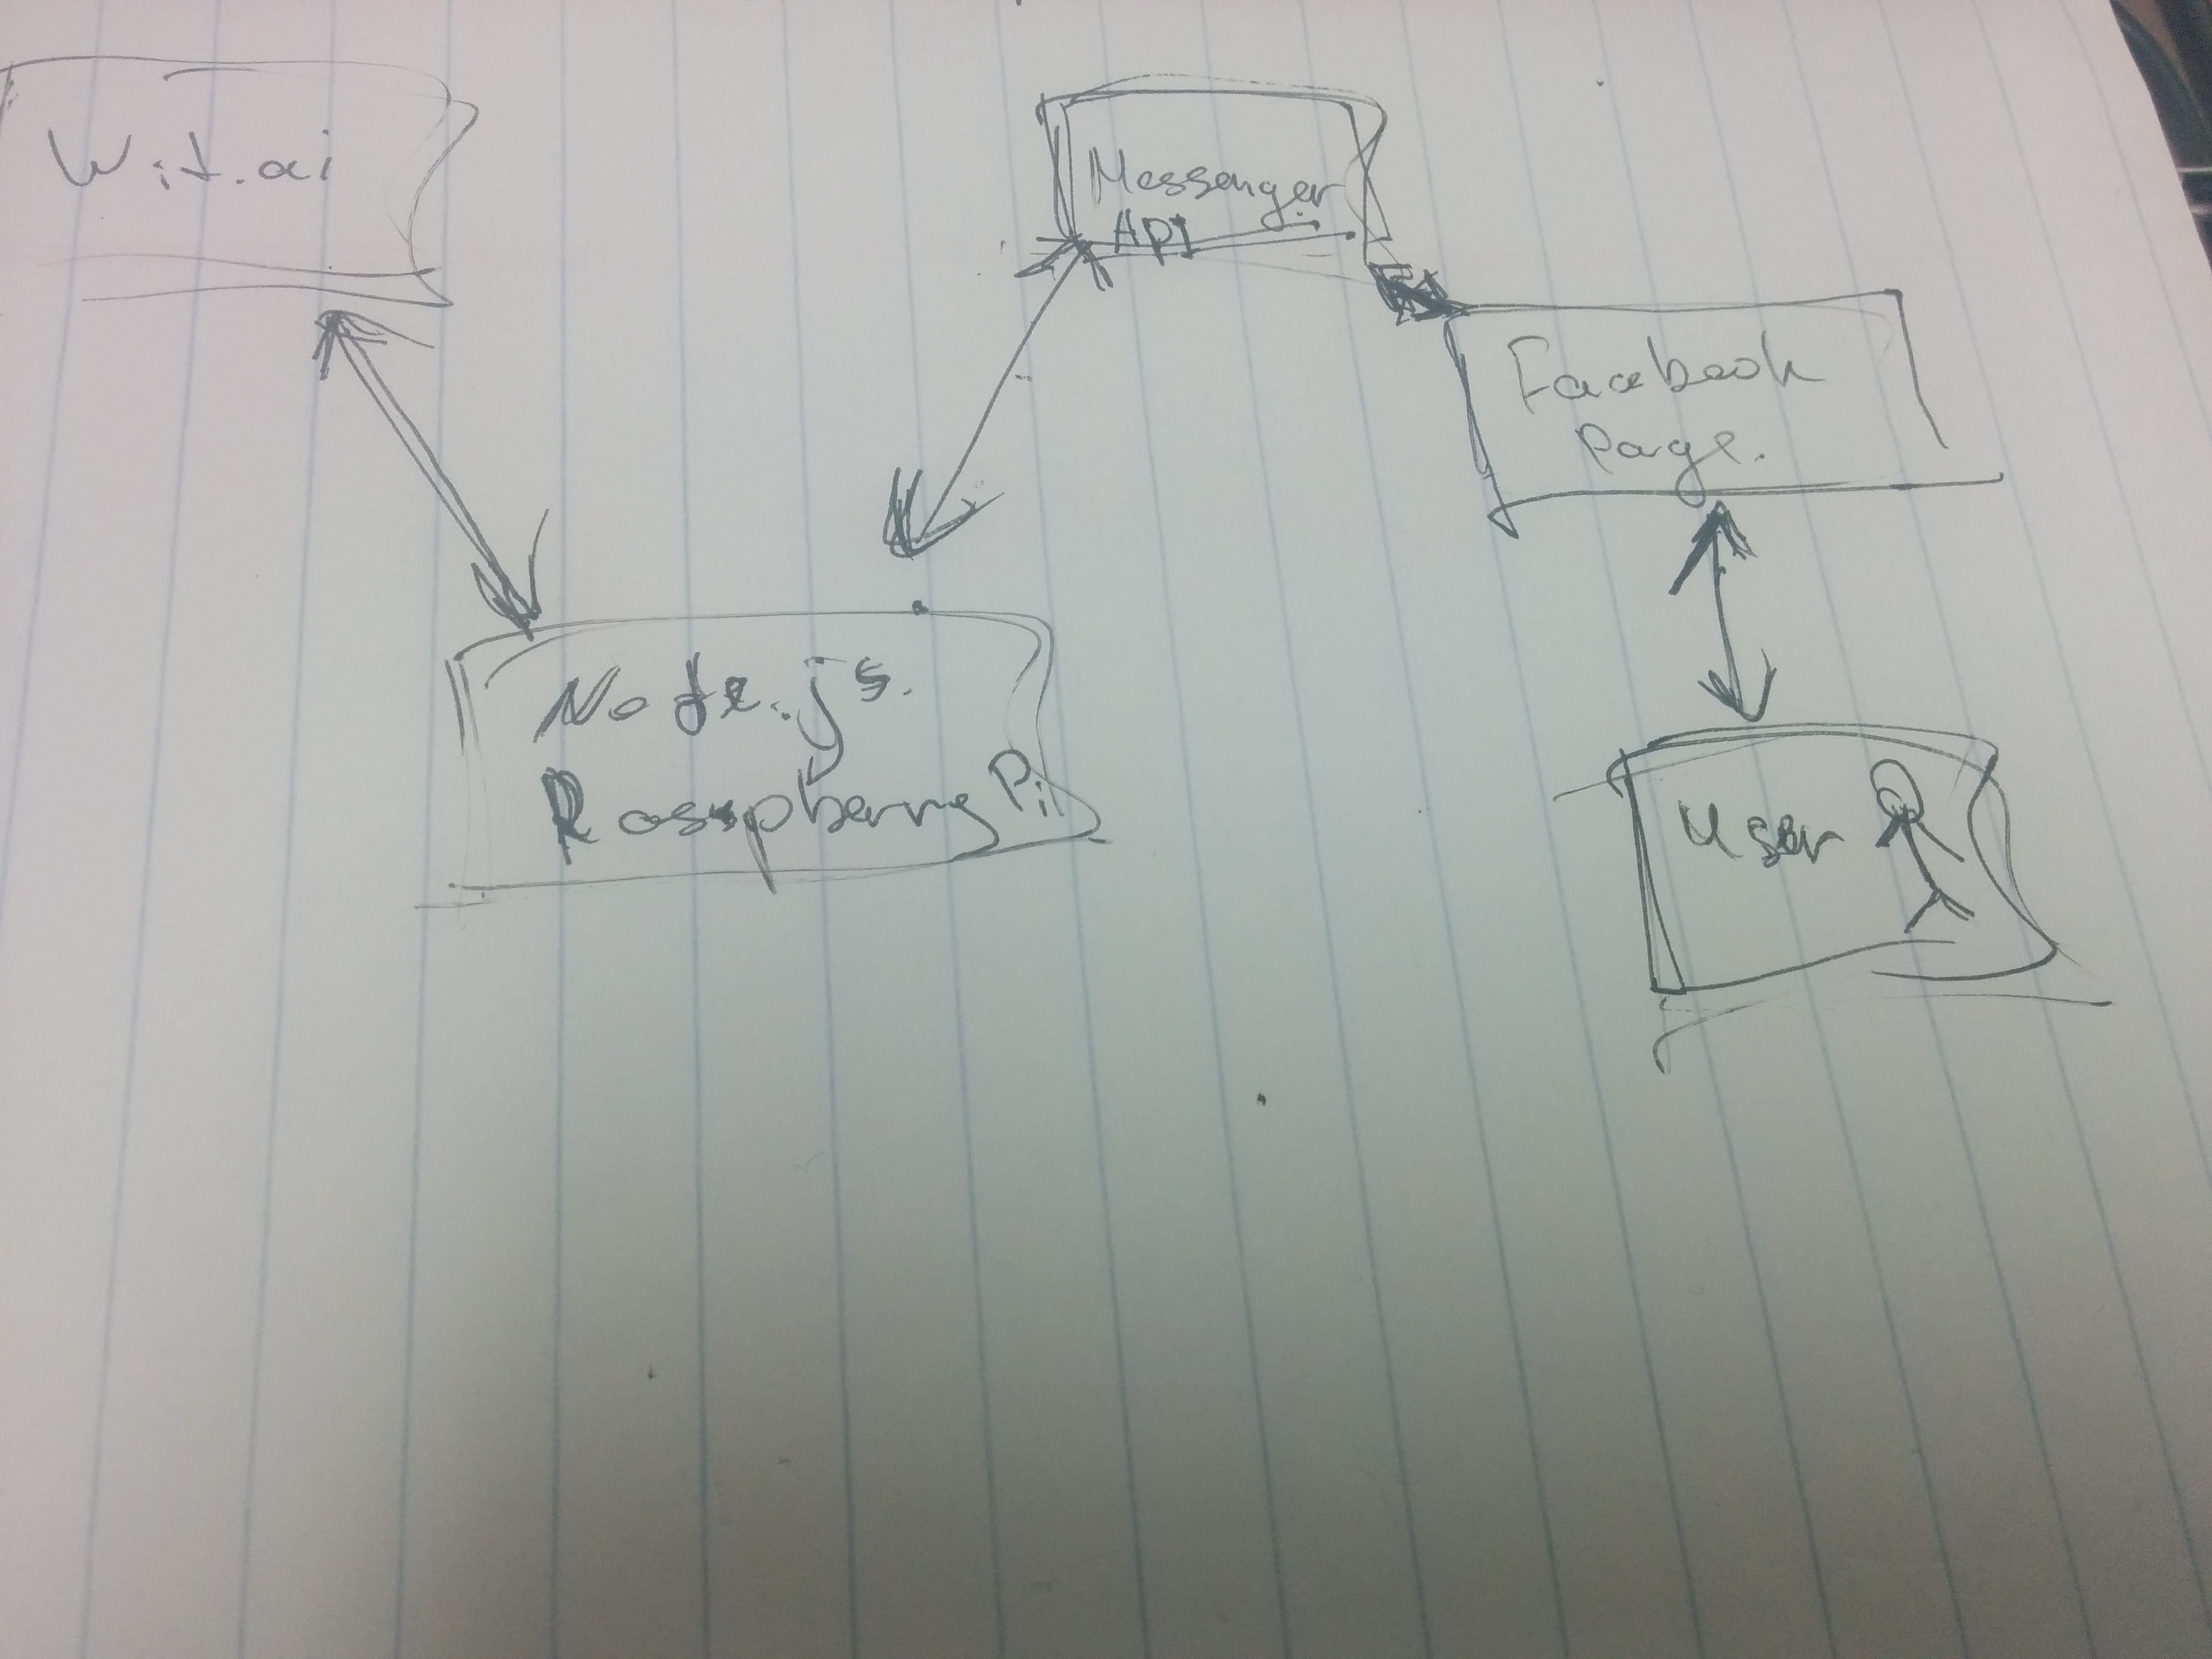 Wit.ai
Messenger
API
Facebook
Page.
Node.js.
Raspberry Pi
User